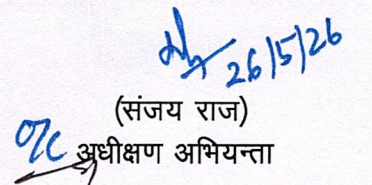 26/5/26
(संजय राज)
O/C अधीक्षण अभियन्ता